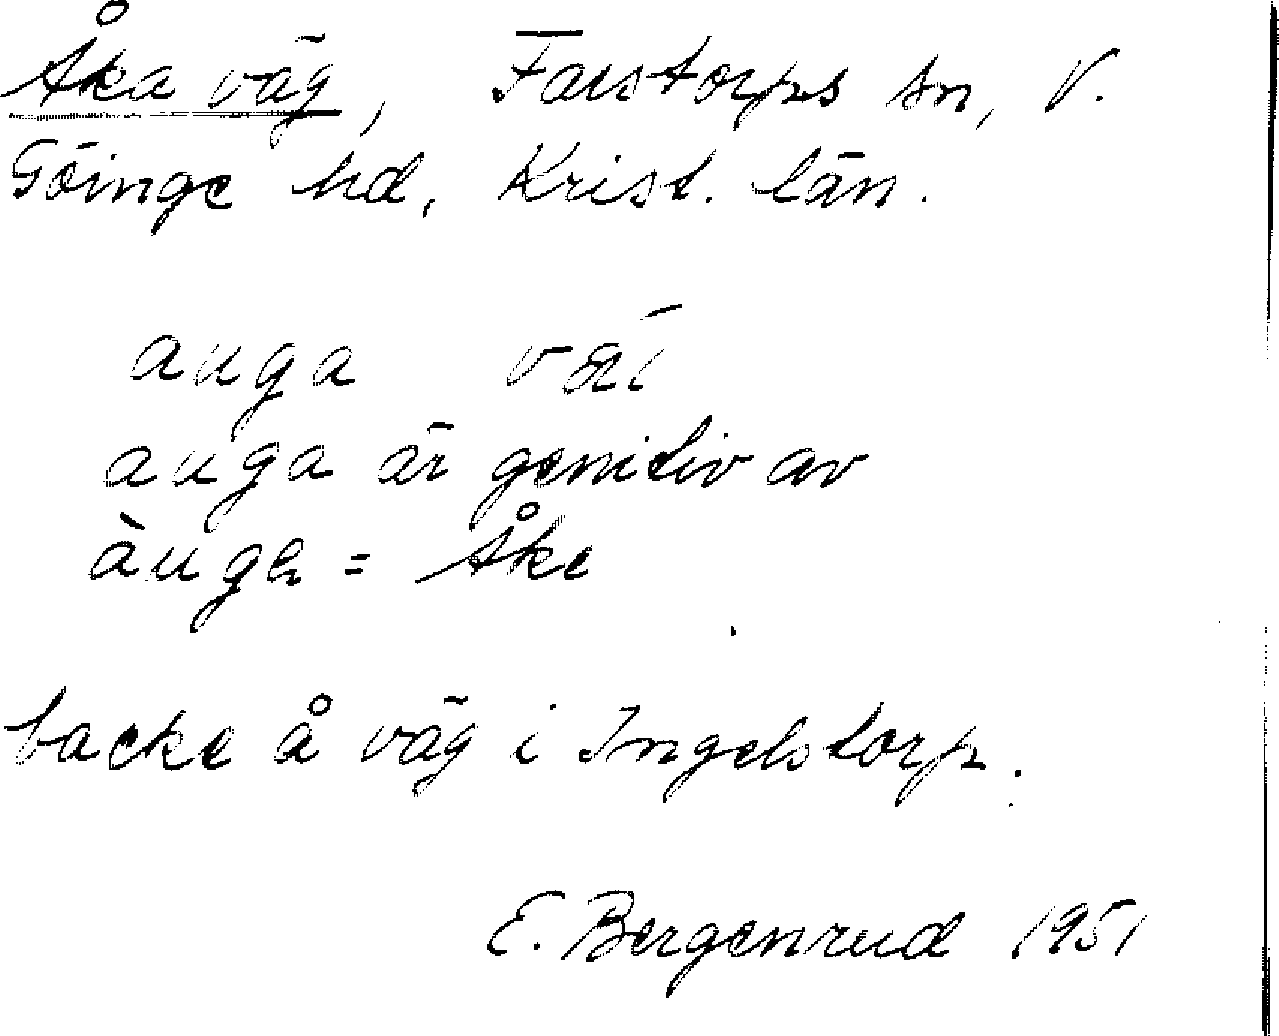 Åka väg, Farstorps sn, V.
Göinge hd, Krist. län.
auga väi
auga är genitiv av
àuga = Åke
backe å väg i Ingelstorp.
E. Bergenrud 1951